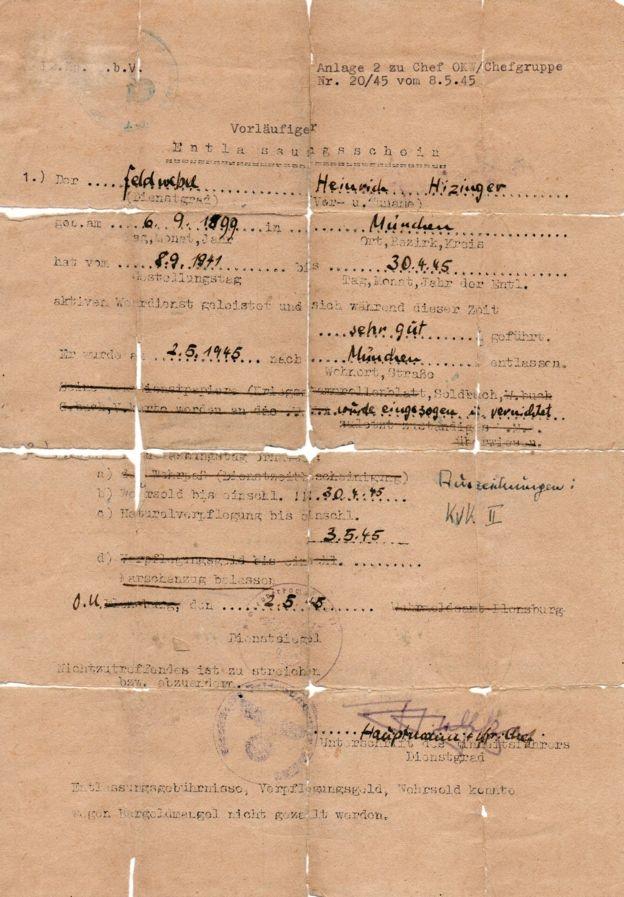 Anlage 2 zu Chef OKW/Chefgruppe
Nr. 20/45 vom 8.5.45
Vorläufiger
Entlassungsschein
1.) Der .... Feldwebel .... Heinrich Hizinger
(Dienstgrad) Vor- u. Zuname)
geb.am ... 6.9.1899 ... in ... München
Tag,Monat,Jahr Ort,Bezirk,Kreis
hat vom .... 8.9.1941 .... bis .... 30.4.45
Gestellungstag Tag,Monat,Jahr der Entl.
aktiven Wehrdienst geleistet und sich während dieser Zeit
... sehr gut ... geführt.
Er wurde am ... 2.5.1945 ... nach ... München ... entlassen.
Wohnort,Straße
Soldbuch, W.buch
werden an die .... wurde eingezogen u. vernichtet
zuletzt zuständige
überwiesen.
a) Wehrpaß (Dienstzeitbescheinigung)
b) Wehrsold bis einschl. ... 30.4.45 Auszeichnungen:
c) Naturalverpflegung bis einschl. KVK II
3.5.45
d) Verpflegungsgeld bis einschl. .........
Marschanzug belassen
O.U. den ..... 2.5.45 Wehrmeldeamt Flensburg
Dienstsiegel
Nichtzutreffendes ist zu streichen
bzw. abzuändern.
Hauptmann u.
Unterschrift des Einheitsführers
Dienstgrad
Entlassungsgebührnisse, Verpflegungsgeld, Wehrsold konnte
wegen Bargeldmangel nicht gezahlt werden.